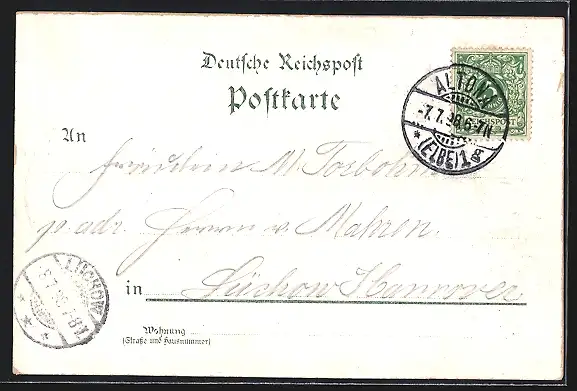 Deutsche Reichspost
Postkarte
ALTONA
-7.7.98.6-7N
* (ELBE) 1 a
REICHSPOST
An Fräulein M. Torbohm
p. adr. Herrn v. Mahren.
in Lüchow Hannover
LÜCHOW
Wohnung
(Straße und Hausnummer)